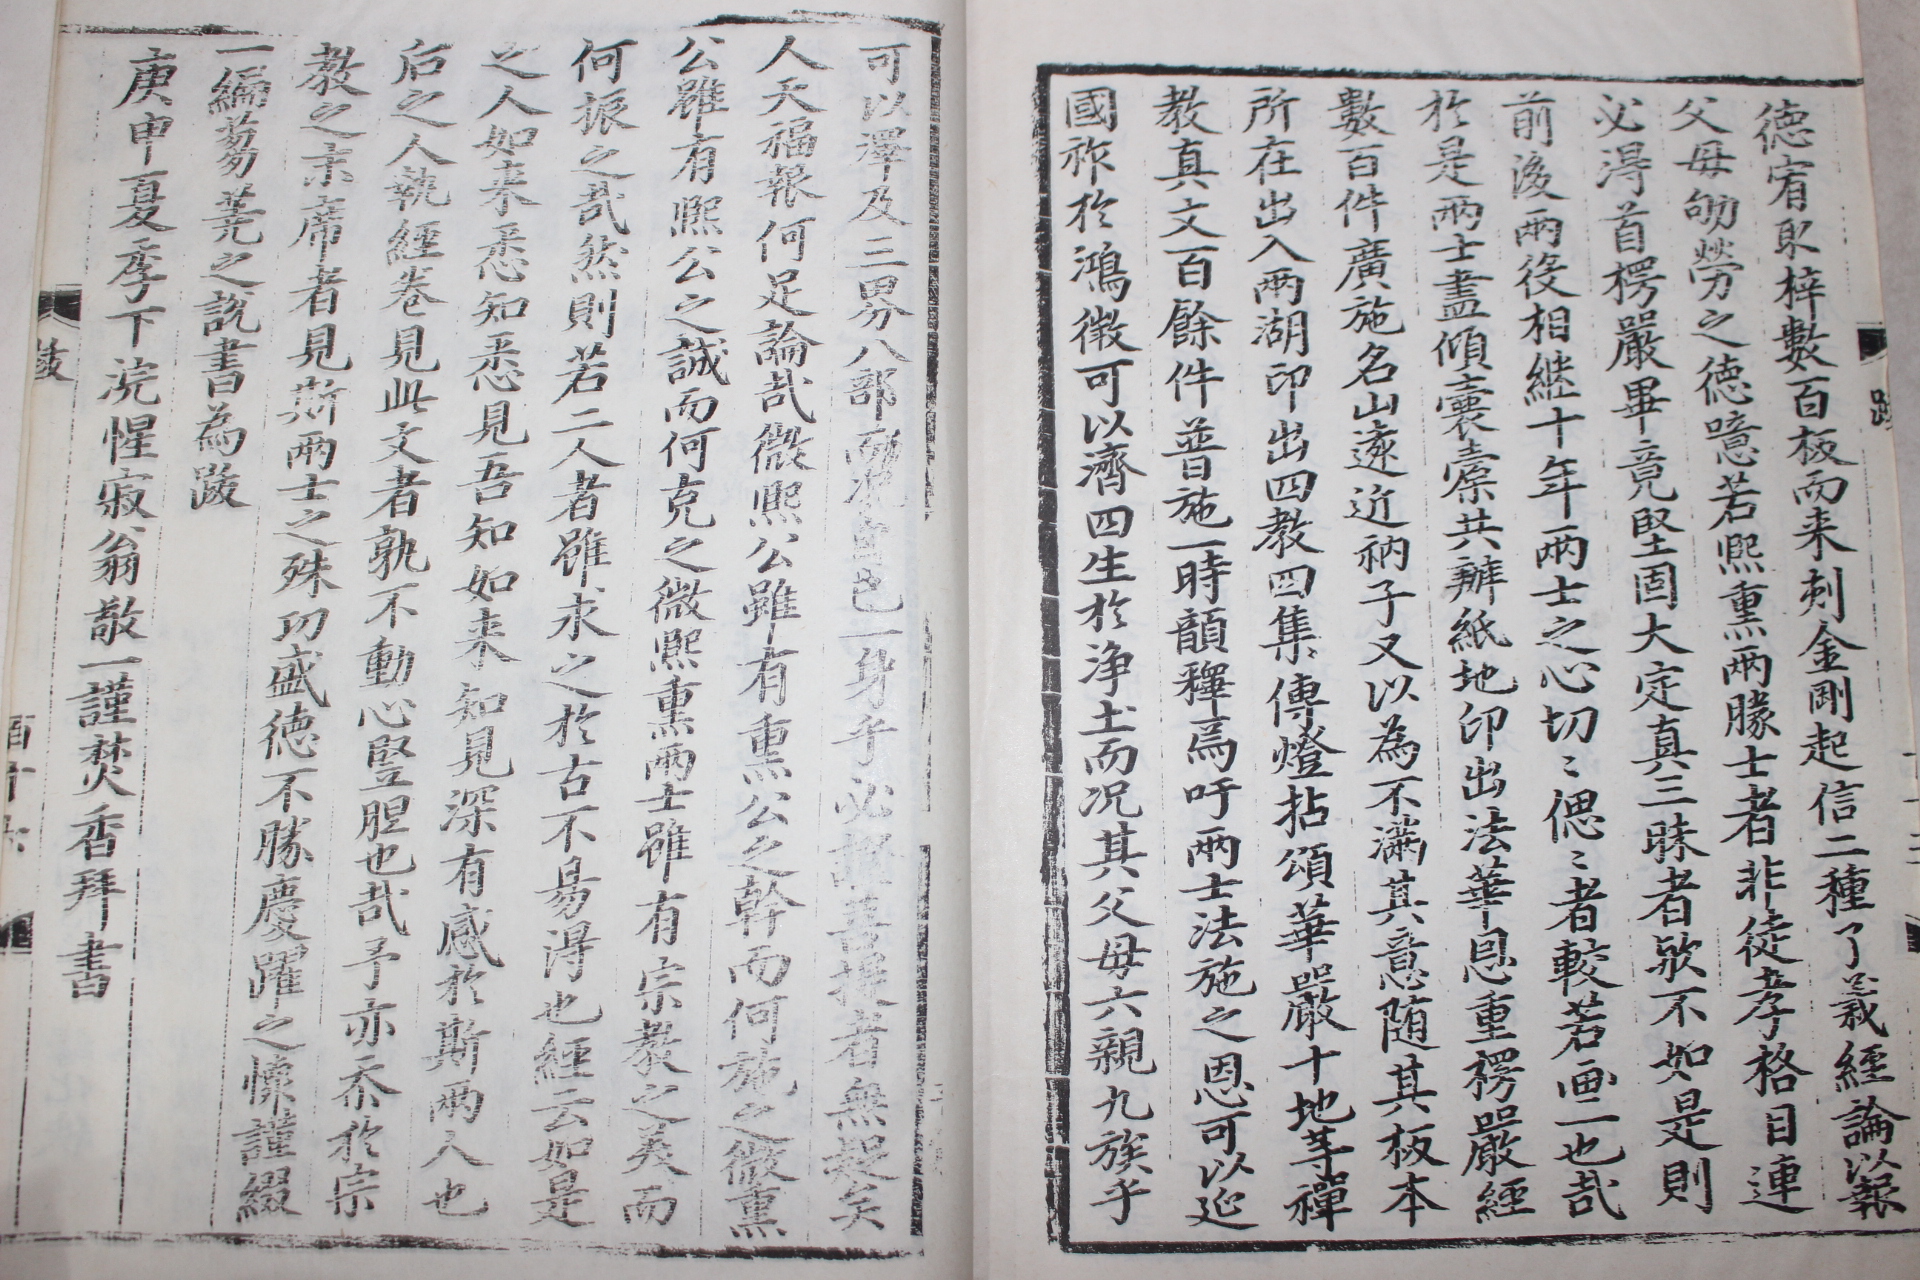 德宥取梓數百板而来刺金剛起信二種了義經論以報
父母劬勞之德噫若熙熏兩勝士者非徒孝格目連
必得首楞嚴畢竟堅固大定真三昧者欤不如是則
前後兩役相継十年兩士之心切〻偲〻者較若画一也哉
於是兩士盡傾囊橐共辦紙地印出法華恩重楞嚴經
數百件廣施名山遠近衲子又以為不滿其意随其板本
所在出入兩湖印出四教四集傳燈拈頌華嚴十地等禪
教真文百餘件並普施一時韻釋焉吁兩士法施之恩可以延
國祚於鴻徵可以濟四生於净土而况其父母六親九族乎
可以澤及三界八部而况自己一身乎必證菩提者無疑矣
人天福報何足論哉微熙公雖有熏公之幹而何施之微熏
公雖有熙公之誠而何克之微熙熏兩士雖有宗教之美而
何振之哉然則若二人者雖求之於古不易得也經云如是
之人如来悉知悉見吾知如来知見深有感於斯兩人也
后之人執經卷見此文者孰不動心竪胆也哉予亦忝於宗
教之末席者見斯兩士之殊功盛德不勝慶躍之懷謹綴
一編芻蕘之說書為䟦
庚申夏季下浣惺寂翁敬一謹焚香拜書